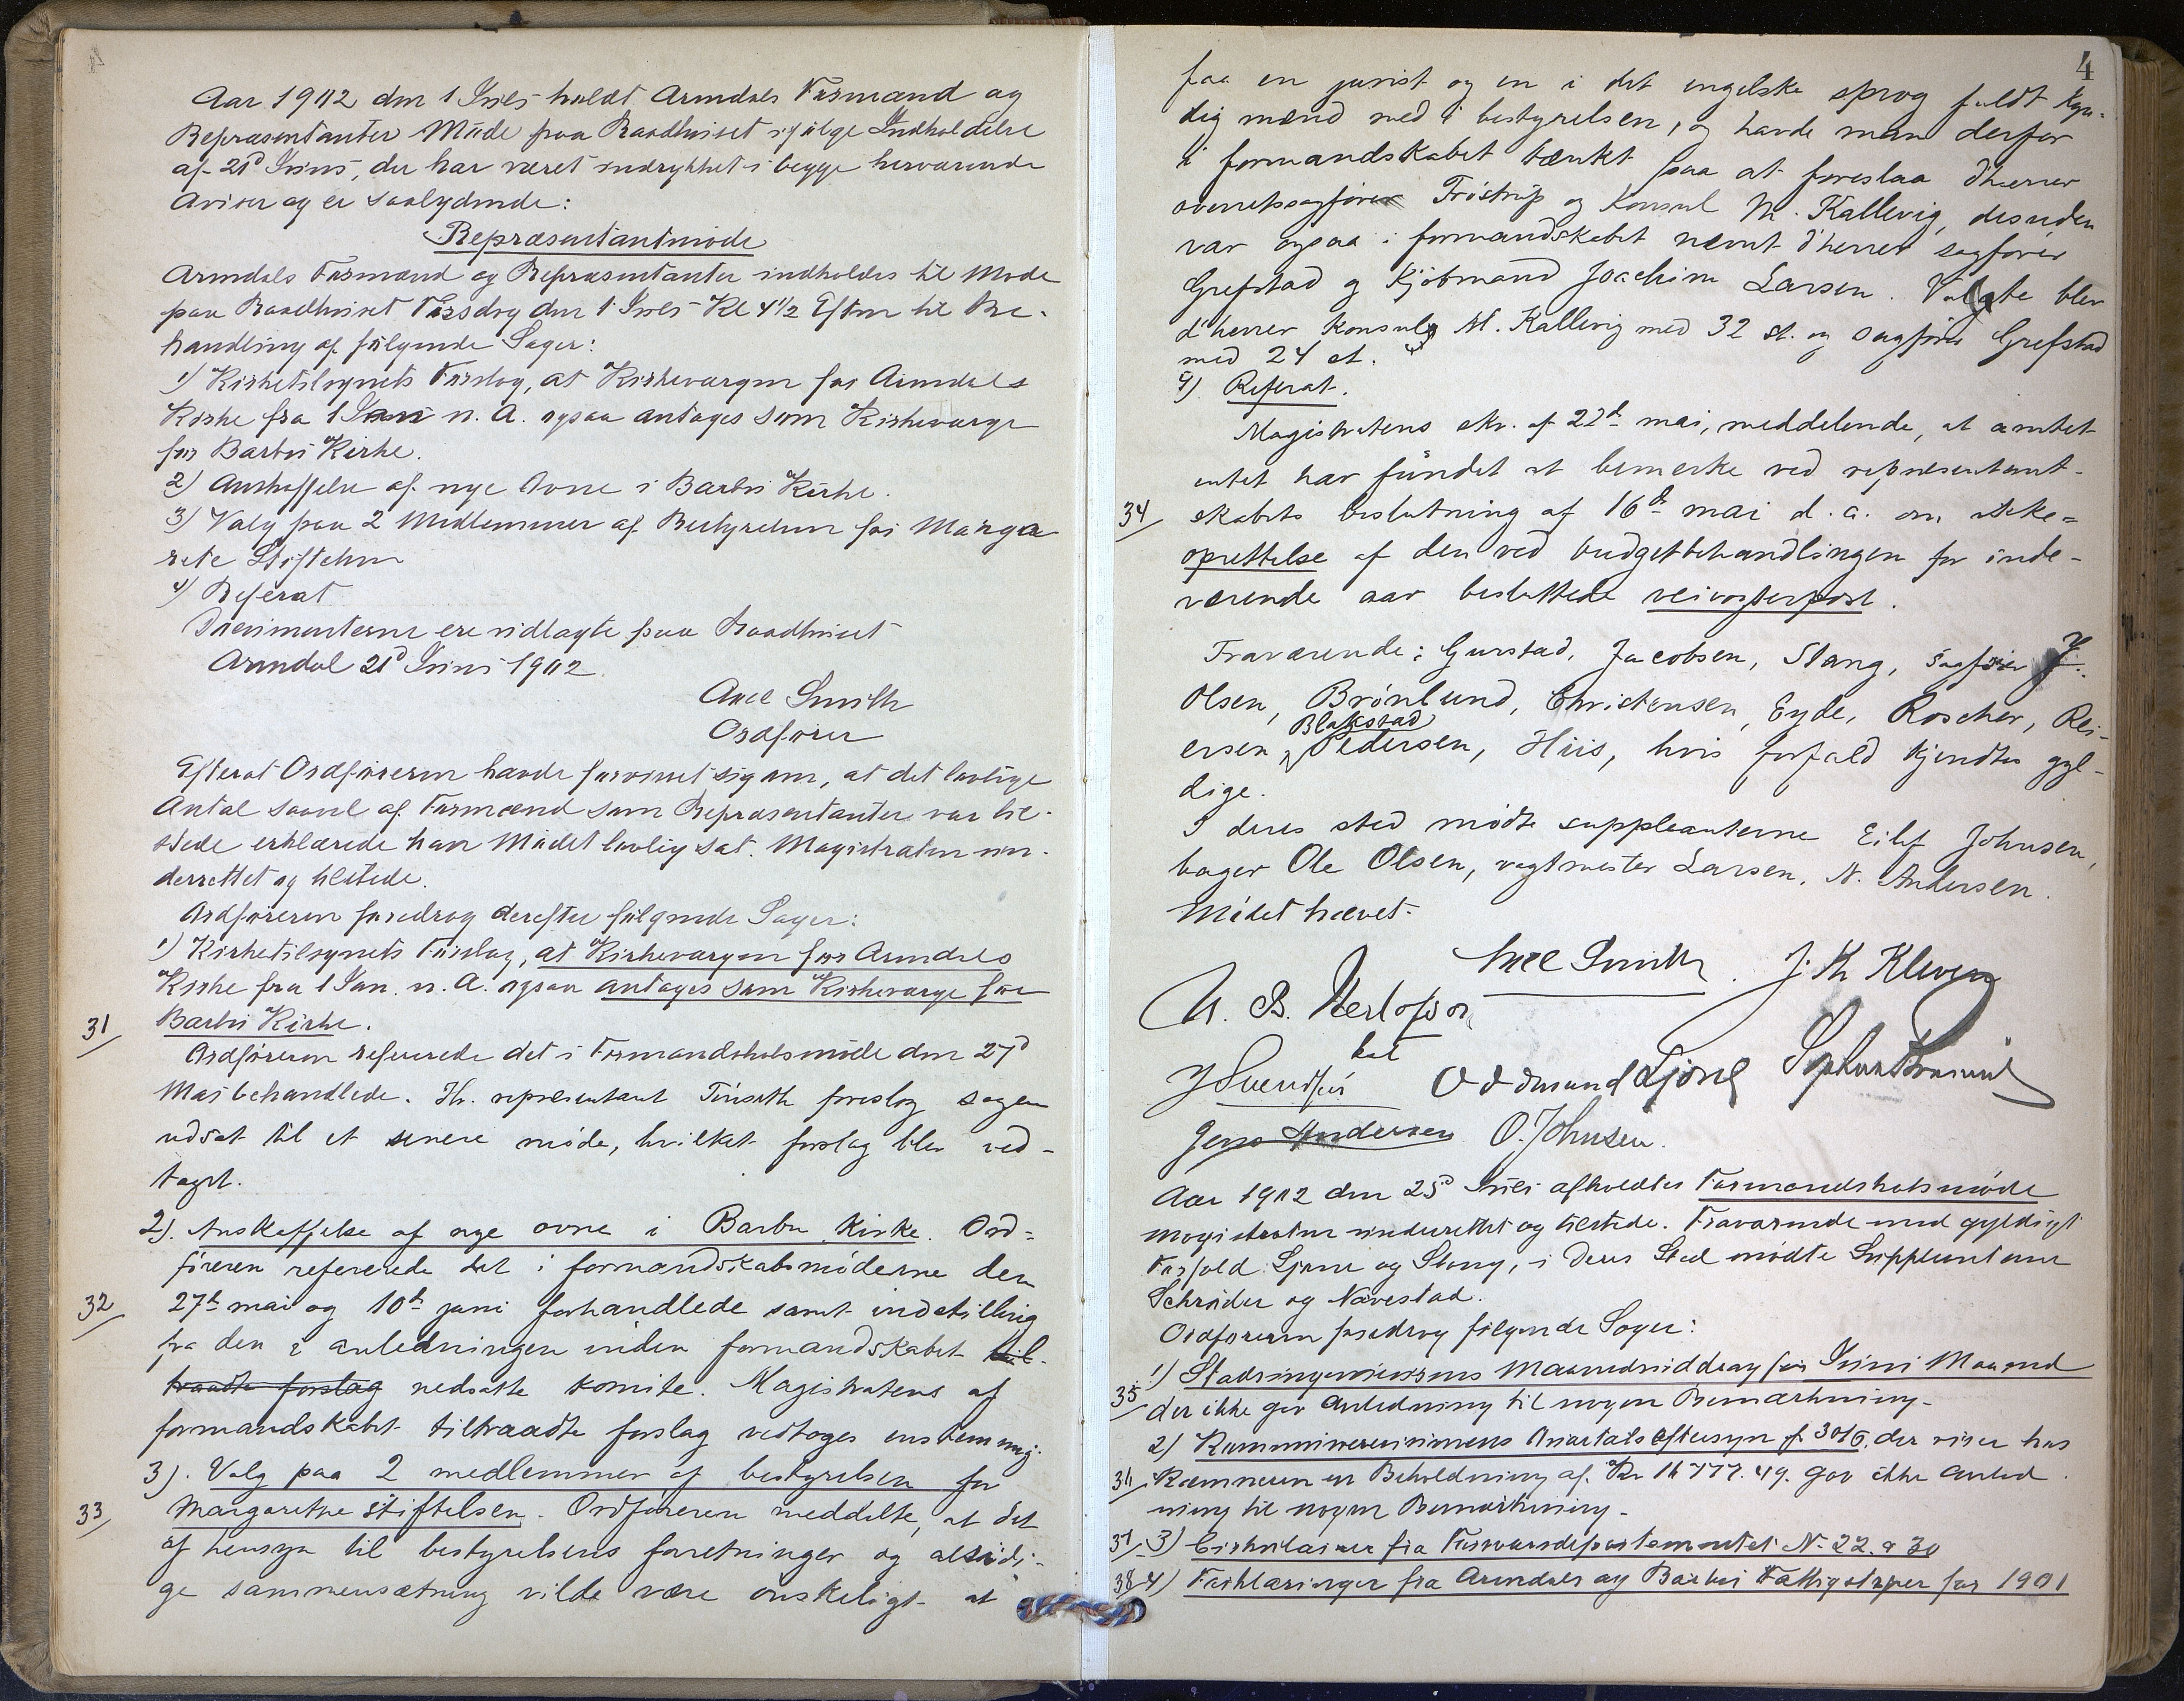 Aar 1902 den 1 Juli holdt Arendals Formænd og
Repræsentanter Møde paa Raadhuset ifølge Indkaldelse
af 21d Juni, der har været indrykket i begge herværende
Aviser og er saalydende:
Repræsentantmøde
Arendals Formænd og Repræsentanter indkaldes til Møde
paa Raadhuset Tirsdag den 1 Juli Kl 4 1/2 Efterm til Be-
handling af følgende Sager:
1) Kirketilsynets Forslag, at Kirkeværgen for Arendals
Kirke fra 1 Jan n. A. ogsaa antages som Kirkeværge
for Barbu Kirke.
2) Anskaffelse af nye Ovne i Barbu Kirke.
3) Valg paa 2 Medlemmer af Bestyrelsen for Marga
rete Stiftelsen
4) Referat
Documenterne ere udlagte paa Raadhuset
Arendal 21d Juni 1902.
Axel Smith
Ordfører
Efterat Ordføreren havde forvisset sig om, at det lovlige
Antal saavel af Formænd som Repræsentanter var til-
stede erklærede han Mødet lovlig sat. Magistraten un-
derrettet og tilstede.
Ordføreren foredrog derefter følgende Sager:
1) Kirketilsynets Forslag, at Kirkeværgen for Arendals
Kirke fra 1 Jan. n. A. ogsaa antages som Kirkeværge for
31/ Barbu Kirke.
Ordføreren refererede det i Formandskabsmøde den 27d
Mai behandlede. Hr. representant Finseth foreslog sagen
udsat til et senere møde, hvilket forslag blev ved-
taget.
2). Anskaffelse af nye ovne i Barbu Kirke. Ord-
føreren refererede det i formandskabsmøderne den
32/ 27de mai og 10de juni forhandlede samt indstilling
fra den i anledningen inden formandskabet til-
traadte forslag nedsatte komite. Magistratens af
formandskabet tiltraadte forslag vedtoges enstemmig.
3). Valg paa 2 medlemmer af bestyrelsen for
33/ Margarethe stiftelsen. Ordføreren meddelte, at det
af hensyn til bestyrelsens forretninger og alsidi-
ge sammensætning vilde være ønskeligt at
4
faa en jurist og en i det engelske sprog fuldt kyn-
dig mænd med i bestyrelsen, og havde man derfor
i formandskabet tænkt paa at foreslaa d'herrer
overretssagfører Trøstrup og konsul M. Kallevig, desuden
var ogsaa i formandskabet nævnt d'herrer sagfører
Grefstad og kjøbmand Joachim Larsen. Valgte blev
d'herrer konsul M. Kallevig med 32 st. og sagfører Grefstad
med 24 st.
4). Referat.
Magistratens skr. af 22d mai, meddelende, at amtet
intet har fundet at bemerke ved representant-
34/ skabets beslutning af 16de mai d. a. om ikke-
oprettelse af den ved budgetbehandlingen for inde-
værende aar besluttede veivogterpost.
Fraværende: Gurstad, Jacobsen, Stang, sagfører J.
Olsen, Brønlund, Christensen, Eyde, Roscher, Rei-
Blakstad
ersen, Pedersen, Hiis, hvis forfald kjendtes gyl-
dige.
I deres sted mødte suppleanterne Eilif Johnsen,
bager Ole Olsen, vagtmester Larsen, N. Andersen.
Mødet hævet.
Axel Smith. J. Kr Kleven
N. B. Herlofson
J Svendsen Oddmund Ljone
Jens Andersen O. Johnsen.
Aar 1902 den 25d Juli afholdtes Formandskabsmøde
Magistraten underrettet og tilstede. Fraværende med gyldigt
Forfald Ljone og Stang, i deres Sted mødte Suppleanterne
Schrøder og Nævestad.
Ordføreren foredrog følgende Sager:
1) Stadsingeniørens Maanedsuddrag for Juni Maaned
35/ der ikke gav Anledning til nogen Bemærkning.
2) Kommunerevisionens Kvartalseftersyn pr 30/6, der viser hos
36/ Kæmneren en Beholdning af Kr 16777.49. gav ikke Anled
ning til nogen Bemærkning.
37/ 3) Cirkulairer fra Forsvarsdepartementet No 22 & 30
38/ 4) Forklaringer fra Arendals og Barbu Fattigstyrer for 1901